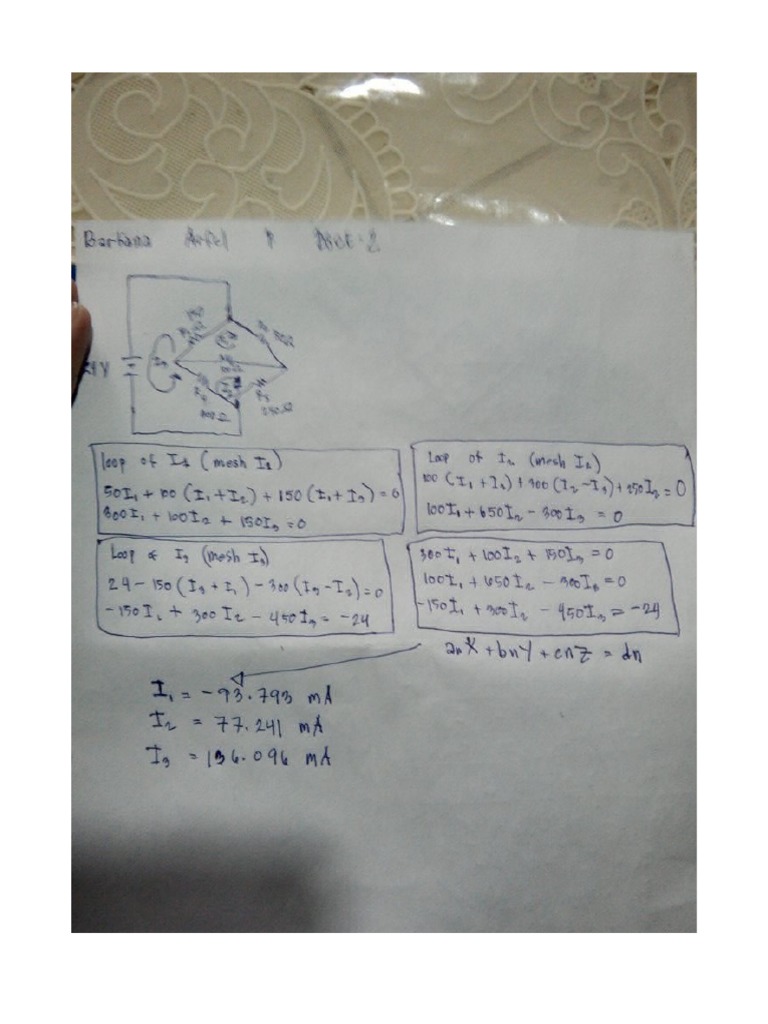 24V
300Ω
250Ω
loop of I1 (mesh I1)
50I1 + 100 (I1+I2) + 150 (I1+I3) = 0
300I1 + 100I2 + 150I3 = 0
Loop of I2 (mesh I2)
100 (I1+I2) + 300 (I2-I3) + 250I2 = 0
100I1 + 650I2 - 300I3 = 0
Loop of I3 (mesh I3)
24 - 150 (I3 + I1) - 300 (I3 - I2) = 0
-150I1 + 300I2 - 450I3 = -24
300I1 + 100I2 + 150I3 = 0
100I1 + 650I2 - 300I3 = 0
-150I1 + 300I2 - 450I3 = -24
anX + bnY + cnZ = dn
I1 = -93.793 mA
I2 = 77.241 mA
I3 = 136.096 mA